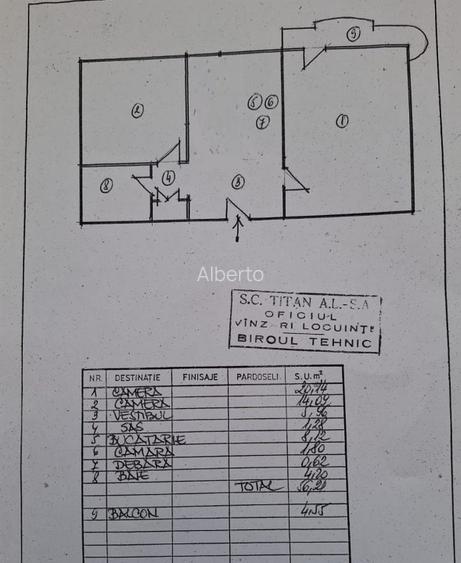 9
5 6
7
2
1
4
8
3
Alberto
S.C. TITAN A.L.-S.A
OFICIUL
VÎNZĂRI LOCUINȚE
BIROUL TEHNIC
NR. DESTINAȚIE FINISAJE PARDOSELI S.U. m²
1 CAMERA 20,14
2 CAMERA 14,09
3 VESTIBUL 5,96
4 SAS 1,28
5 BUCATARIE 8,12
6 CAMARA 1,80
7 DEBARA 0,62
8 BAIE 4,20
TOTAL 56,21
9 BALCON 4,55